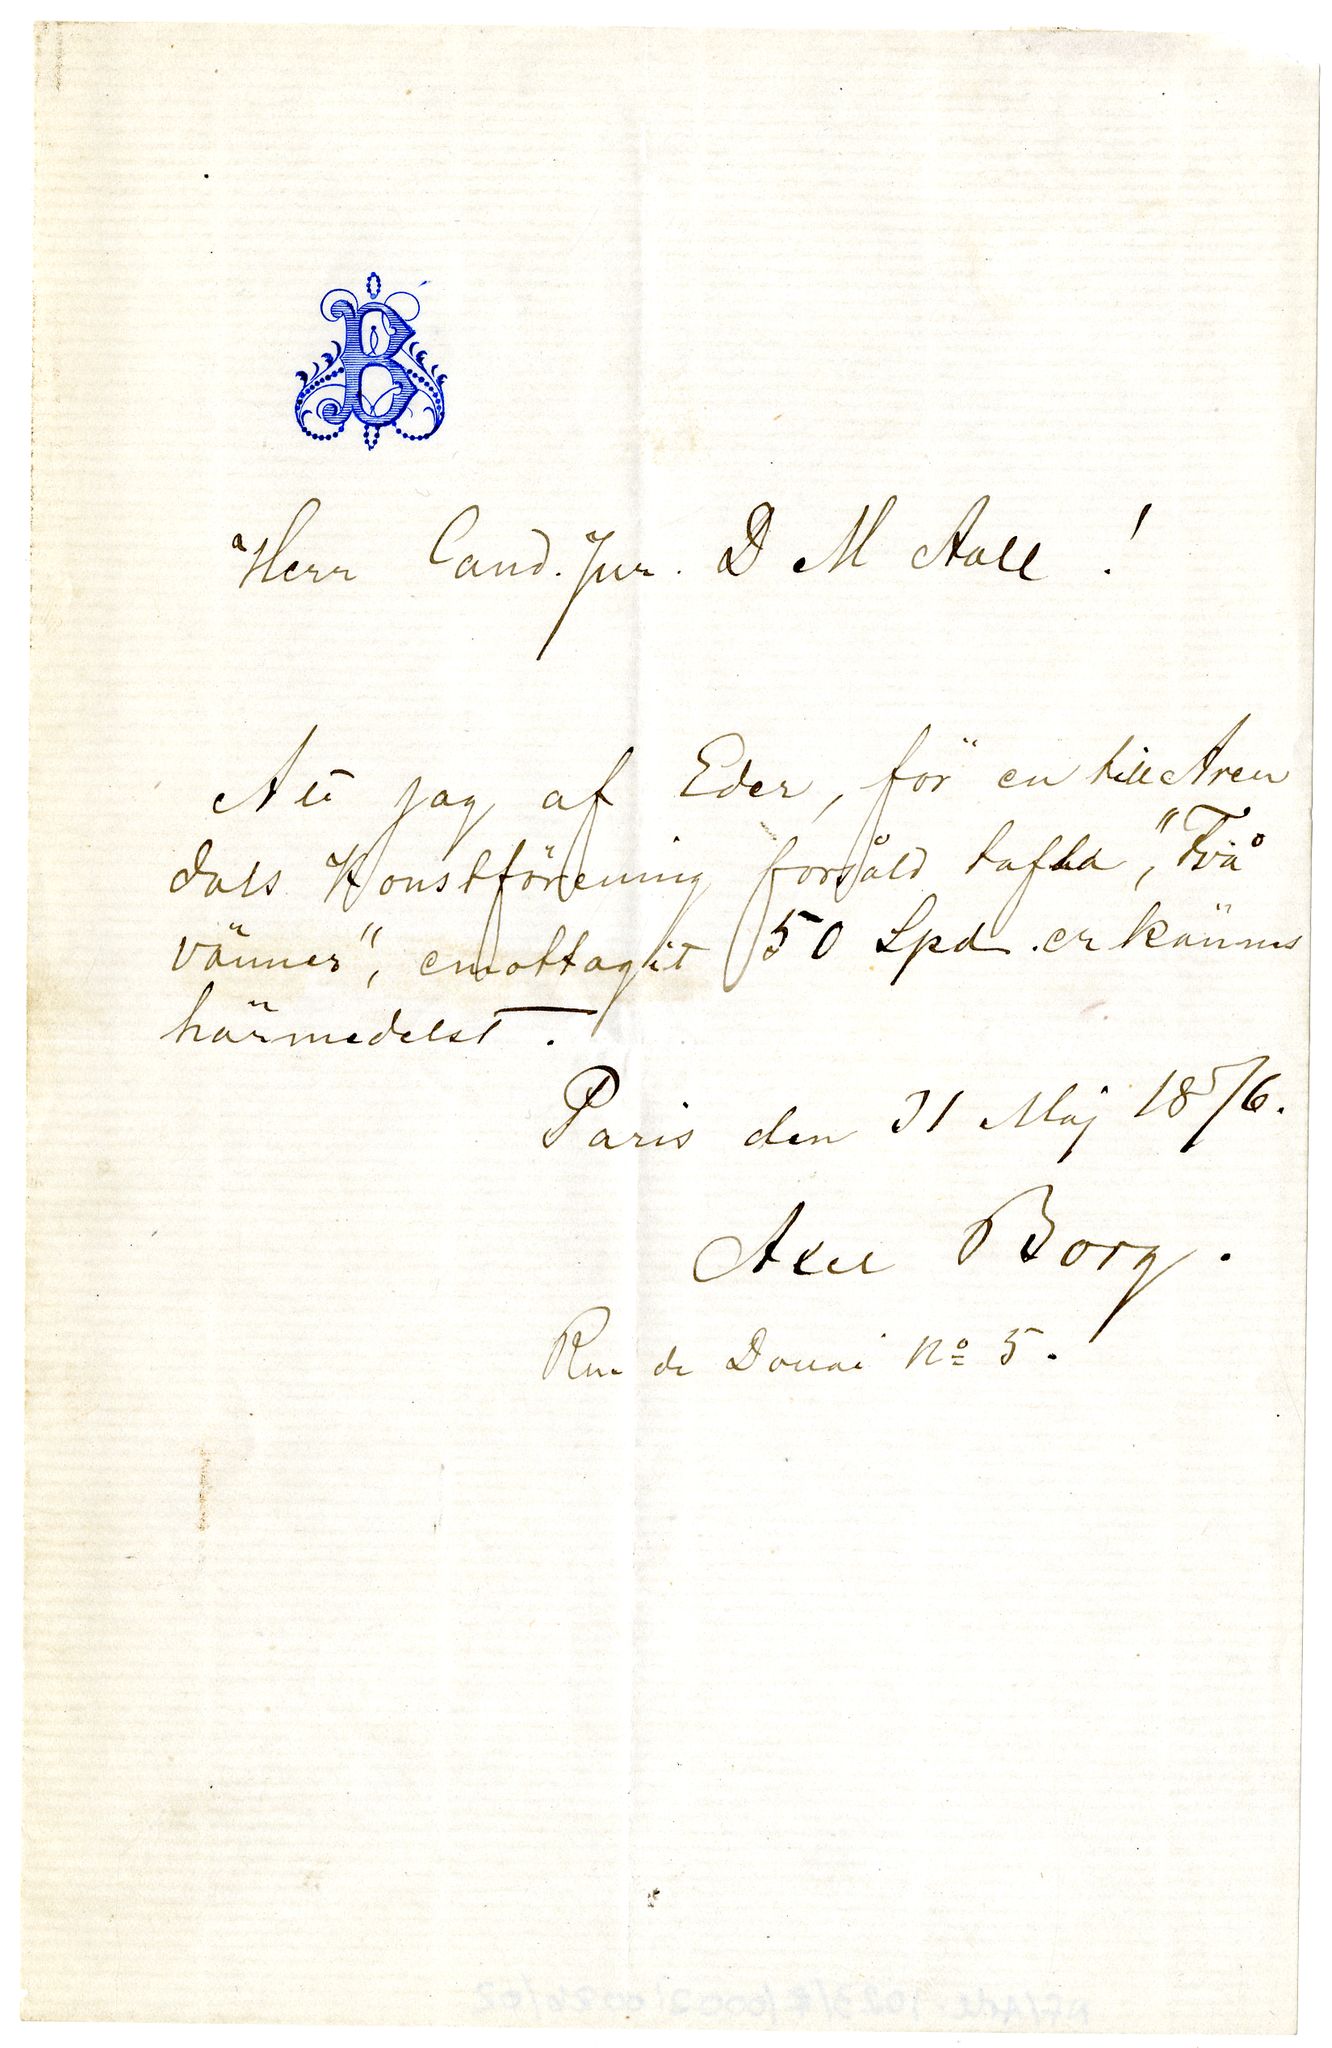 B
Herr Cand. Jur. D M Aall !
Att jag af Eder, för en till Aren
dals Konstförening försåld tafla, "Två
vänner", emottagit 50 Spd. erkännes
härmedelst.
Paris den 31 Maj 1876.
Axel Borg.
Rue de Douai No 5.